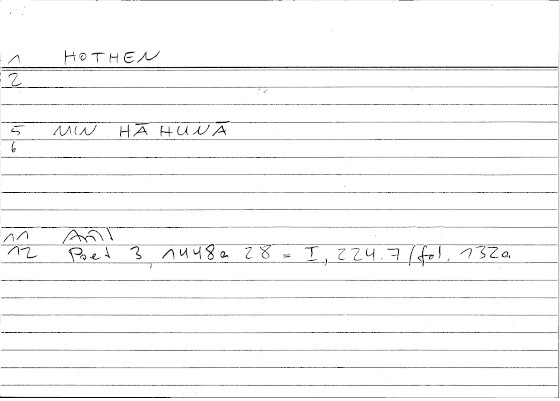 1 HOTHEN
2
5 MIN HĀHUNĀ
6
11
12 Poet 3, 1448a 28 = I, 224.7/fol. 132a